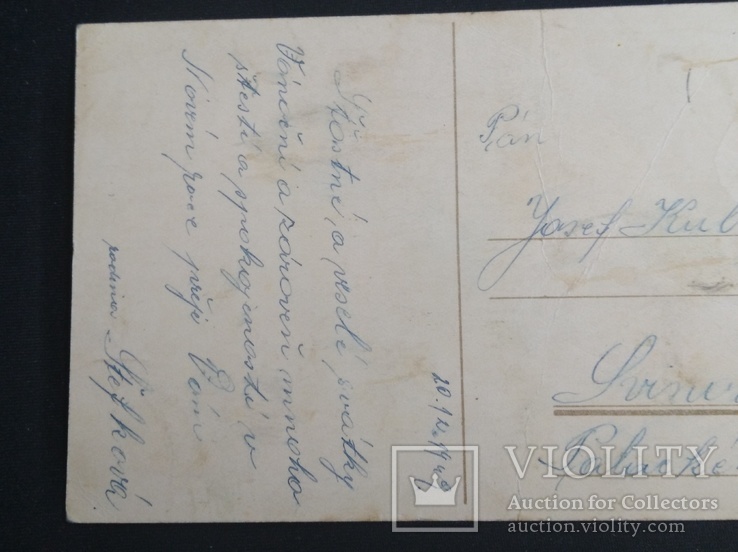 Šťastné a veselé svátky
Vánoční a zároveň mnoho
štěstí a spokojenosti v
Novém roce přeje Vám
rodina Štefková
Pán
Josef Kub
Svinov
Palacké
VIOLITY
Auction for Collectors
auction.violity.com